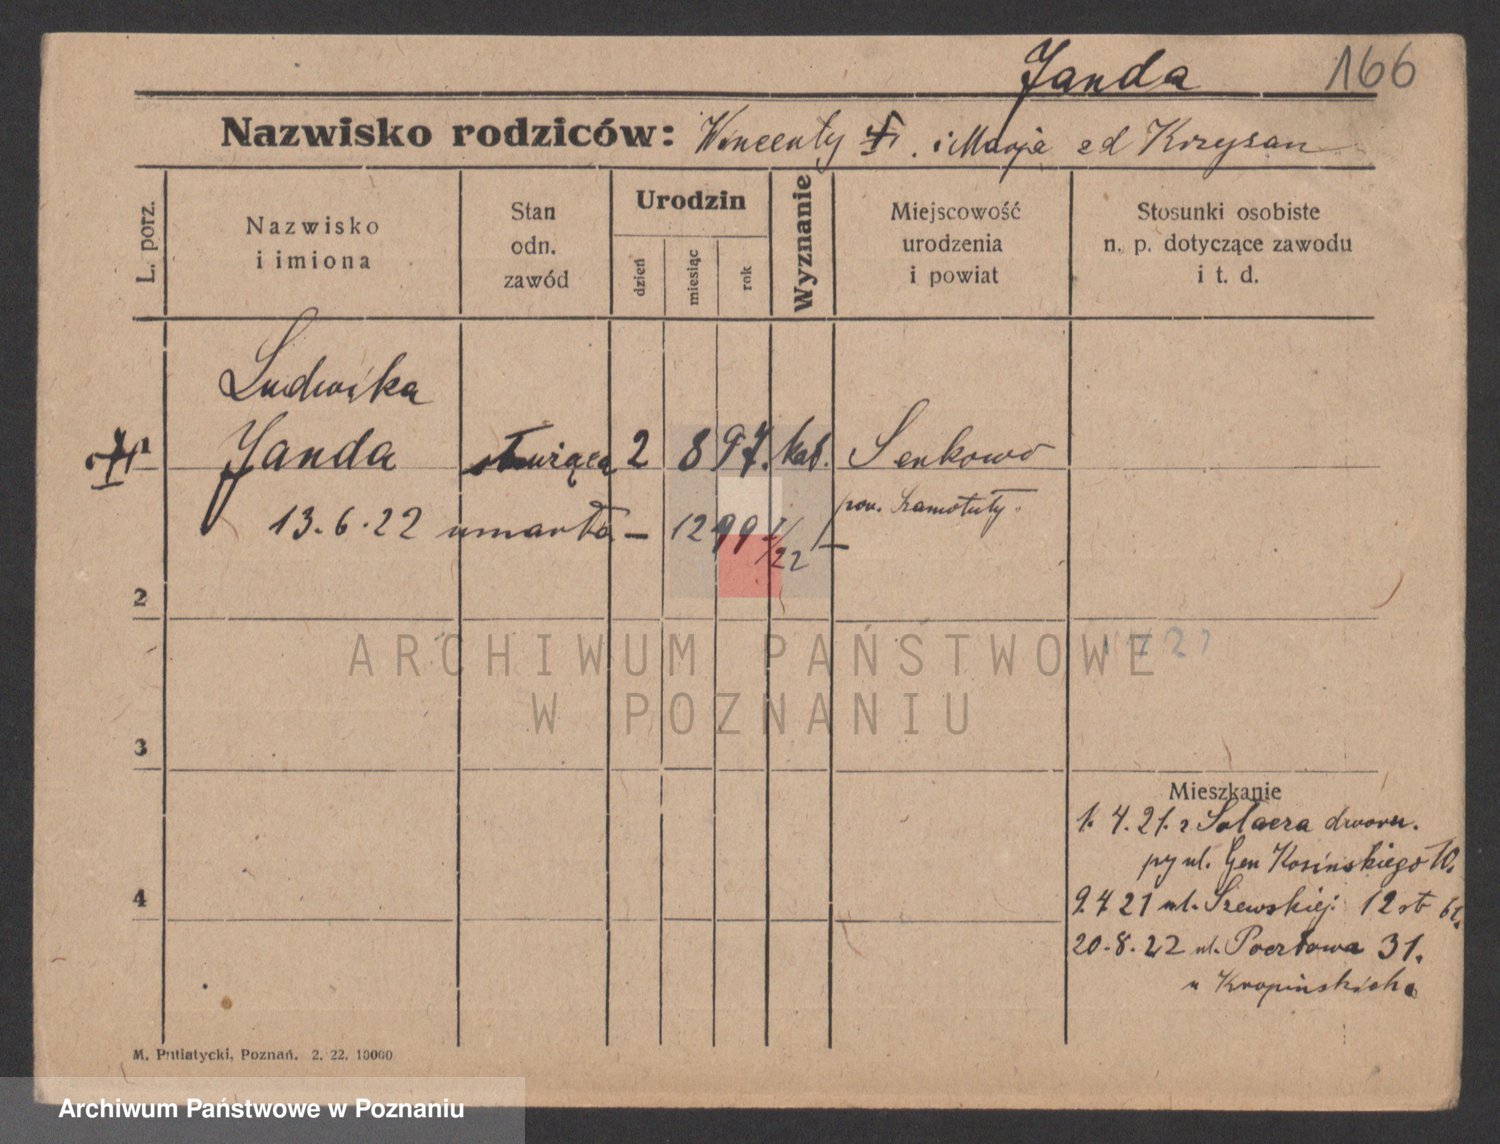 Janda 166
Nazwisko rodziców: Wincenty i Marja z d Krzysan
L. porz.
Nazwisko
i imiona
Stan
odn.
zawód
Urodzin
dzień
miesiąc
rok
Wyznanie
Miejscowość
urodzenia
i powiat
Stosunki osobiste
n. p. dotyczące zawodu
i t. d.
Ludwika
1 Janda służąca 2 8 97. kat. Senkowo
pow. Szamotuły.
13.6.22 umarła – 12 99 /22 –
2
3
4
Mieszkanie
1. 4. 21. z Sołacza dworu.
py ul. Gen Kosińskiego 10.
9.4 21 ul. Szewskiej 12 st
20.8.22 ul. Pocztowa 31.
u Kropińskich
M. Putiatycki, Poznań. 2. 22. 10000
ARCHIWUM PAŃSTWOWE
W POZNANIU
Archiwum Państwowe w Poznaniu